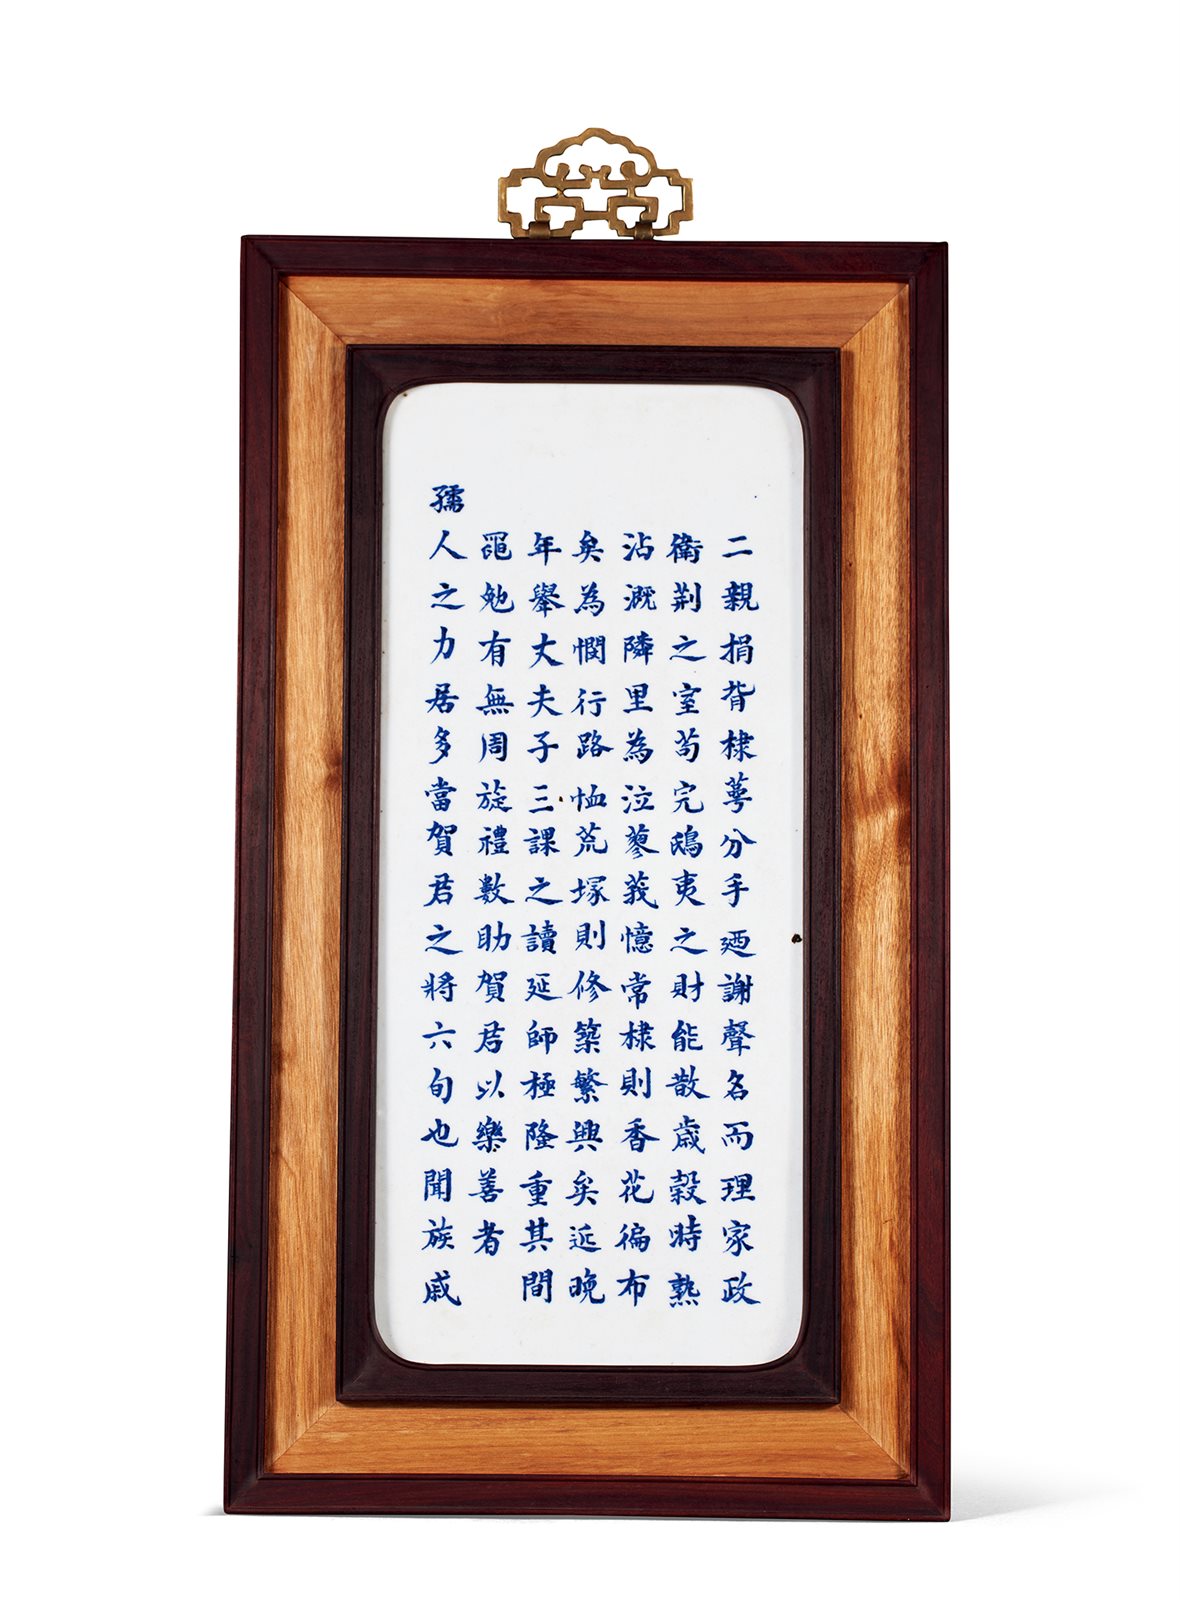 二親捐背棣萼分手廼謝聲名而理家政
衛荆之室苟完鴟夷之財能散歳穀時熟
沾溉隣里為泣蓼莪憶常棣則香花徧布
矣為憫行路恤荒塚則修築繁興矣延晚
年舉丈夫子三課之讀延師極隆重其間
黽勉有無周旋禮數助賀君以樂善者
孺人之力居多當賀君之將六旬也聞族戚